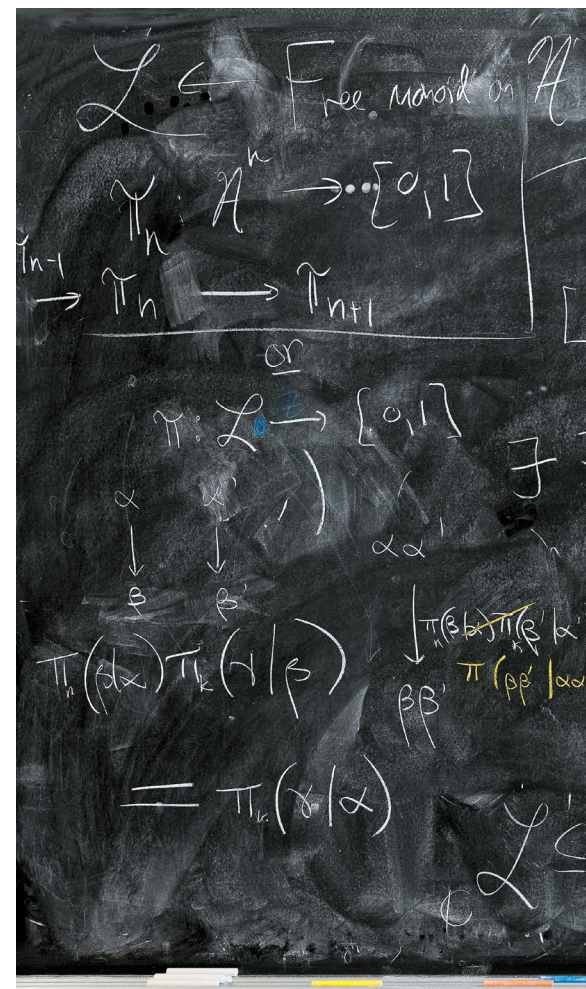 ℒ ← Free monoid on 𝒜
π_n : 𝒜^n → [0,1]
π_{n-1} → π_n → π_{n+1}
or
π : ℒ → [0,1]
α α'
αα'
↓ ↓
β β'
↓ π_n(β|α) π_k(β'|α'
π(ββ'|αα
ββ'
π_n(β|α) π_k(γ|β)
= π_k(γ|α)
ℒ' ⊆